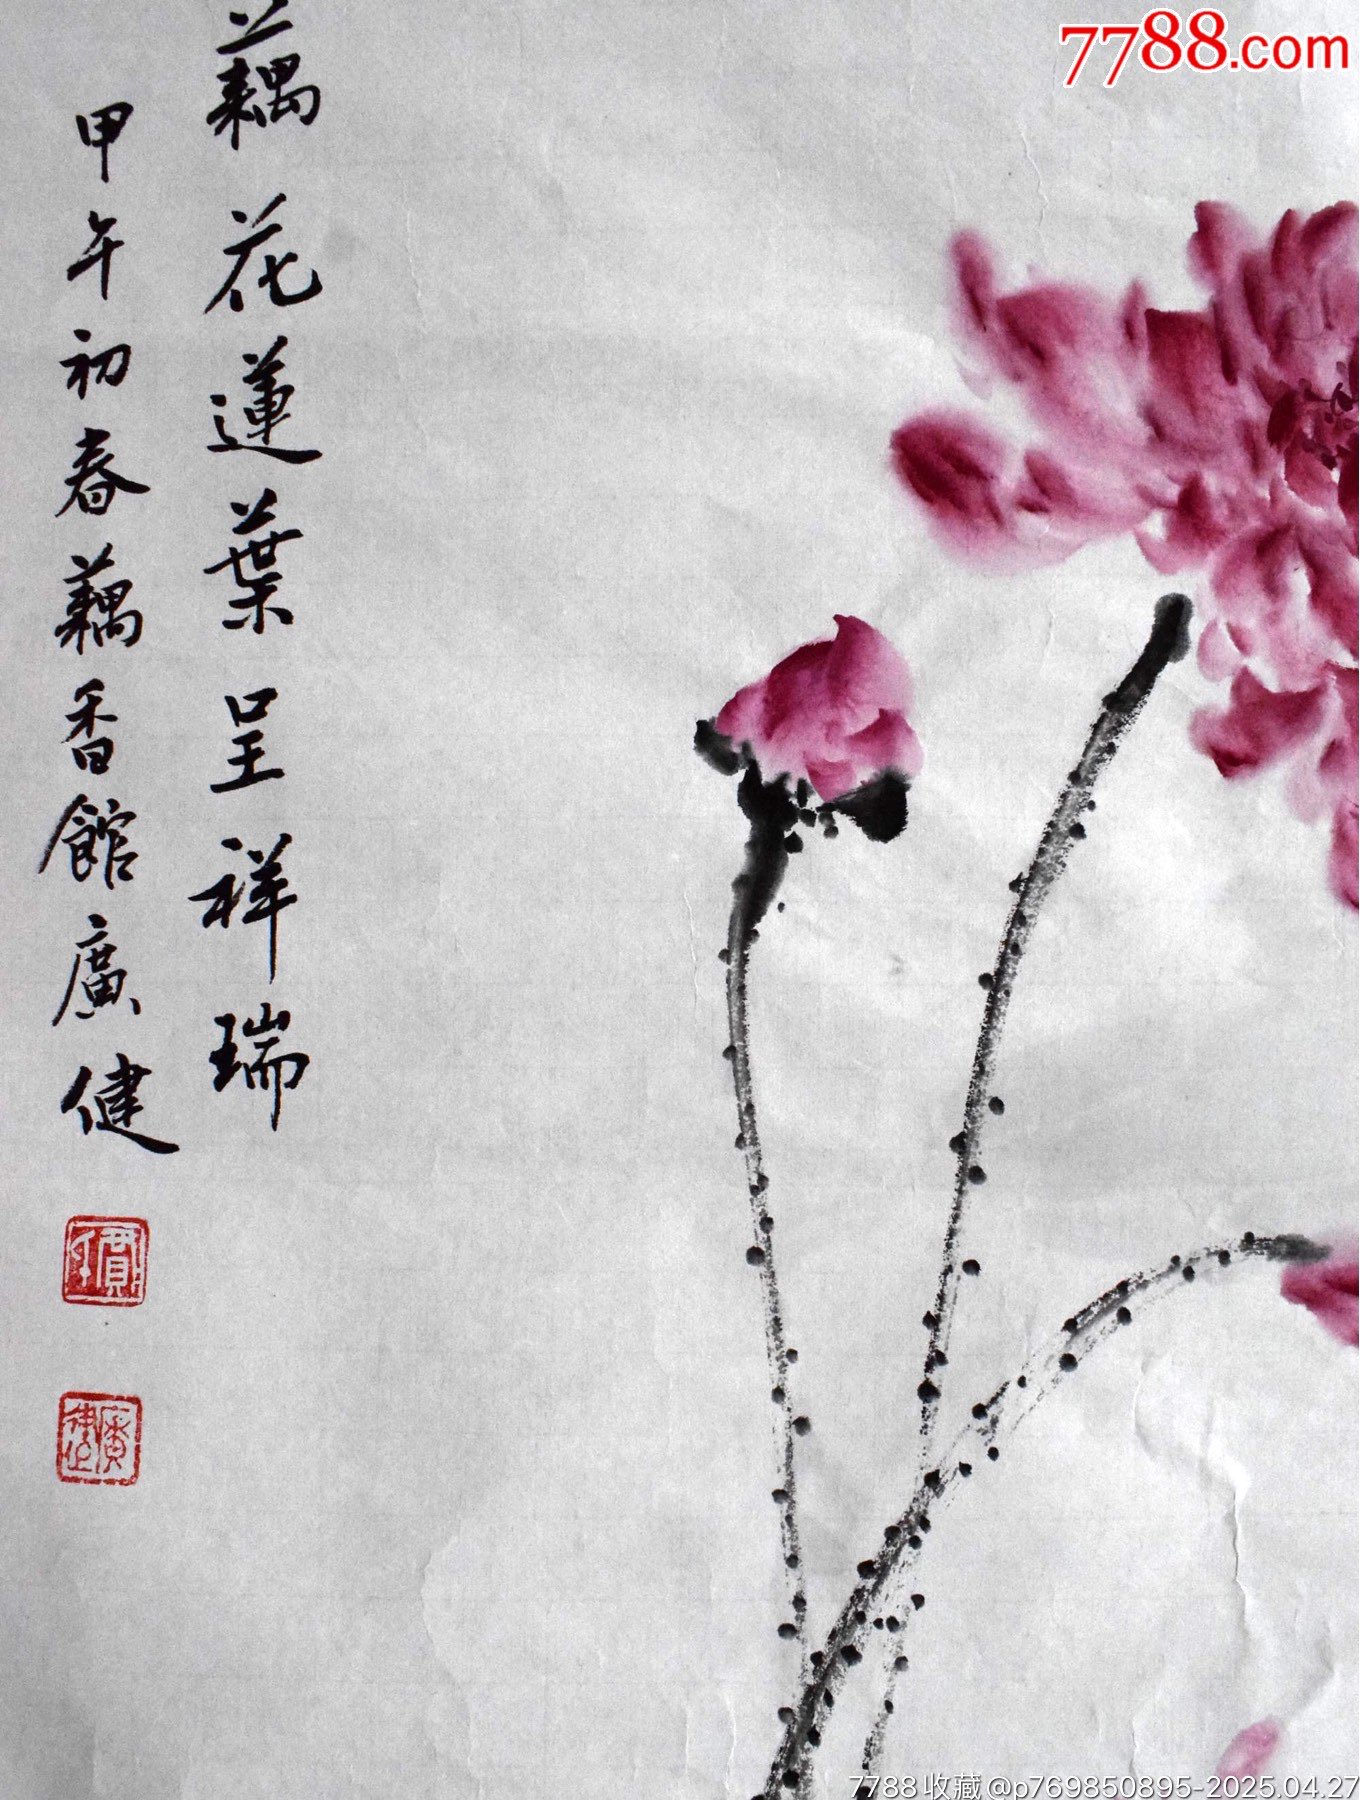 7788.com
藕花蓮葉呈祥瑞
甲午初春藕香館廣健
廣健
7788收藏@p769850895-2025.04.27